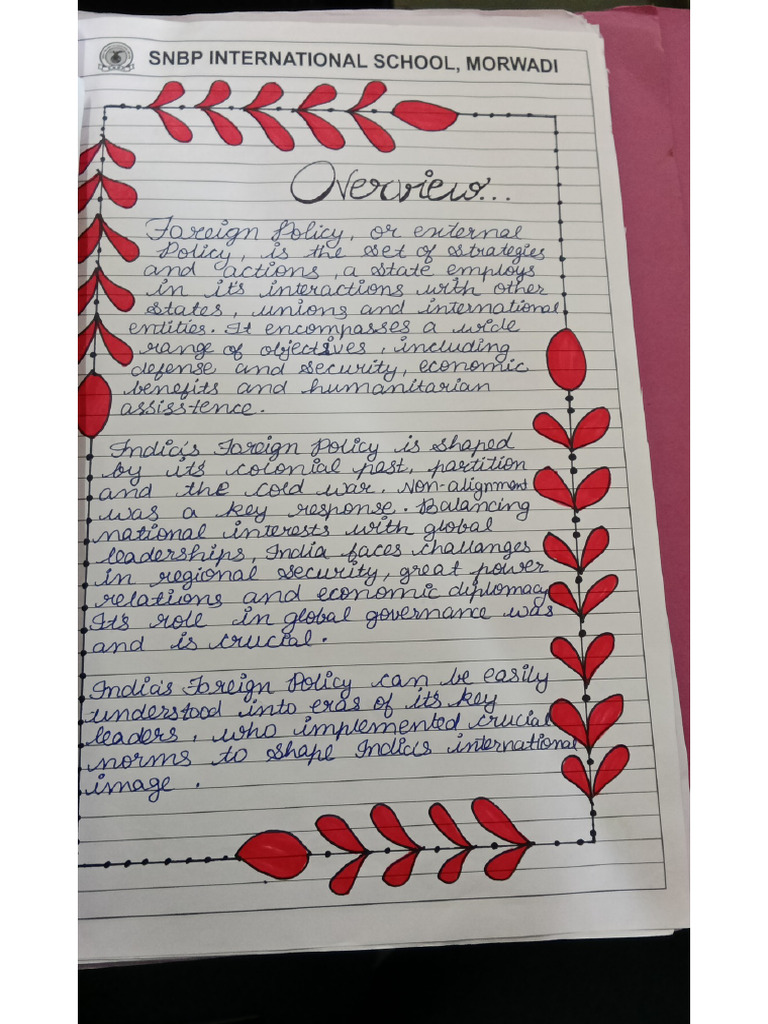 SNBP INTERNATIONAL SCHOOL, MORWADI
Overview...
Foreign Policy, or external
Policy, is the set of strategies
and actions, a state employs
in its interactions with other
states, unions and international
entities. It encompasses a wide
range of objectives, including
defense and security, economic
benefits and humanitarian
assisstence.
India's Foreign Policy is shaped
by its colonial past, partition
and the cold war. Non-alignment
was a key response. Balancing
national interests with global
leaderships, India faces challanges
in regional security, great power
relations and economic diplomacy
It's role in global governance was
and is crucial.
India's Foreign Policy can be easily
understood into eras of its key
leaders, who implemented crucial
norms to shape India's international
image.